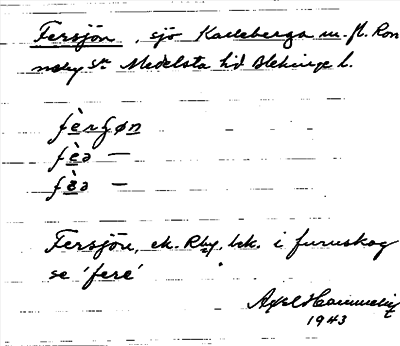 Fersjön, sjö Karlsberga m. fl. Ron
neby sn Medelsta hd Blekinge l.
fèrʃøn
fèə —
fèə —
Fersjön, ek. Rby, bk. i furuskog
se 'fere'
Axel
1943